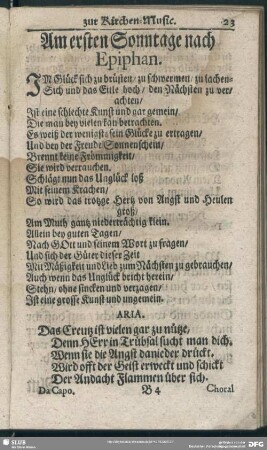 zur Kirchen-Music. 23
Am ersten Sonntage nach
Epiphan.
IM Glück sich zu brüsten/ zu schwermen/ zu lachen
Sich und das Eitle hoch/ den Nächsten zu ver-
achten/
Ist eine schlechte Kunst und gar gemein/
Die man bey vielen kan betrachten.
Es weiß der wenigste sein Glücke zu ertragen/
Und bey der Freude Sonnenschein/
Brennt keine Frömmigkeit/
Sie wird verrauchen.
Schlägt nun das Unglück loß
Mit seinem Krachen/
So wird das trotzge Hertz von Angst und Heulen
groß/
Am Muth gantz niederträchtig klein.
Allein bey guten Tagen/
Nach GOtt und seinem Wort zu fragen/
Und sich der Güter dieser Zeit
Mit Mäßigkeit und Lieb zum Nächsten zu gebrauchen/
Auch wenn das Unglück bricht herein/
Stehn/ ohne sincken und verzagen/
Ist eine grosse Kunst und ungemein.
ARIA.
Das Creutz ist vielen gar zu nütze,
Denn HErr in Trübsal sucht man dich.
Wenn sie die Angst danieder drückt,
Wird offt der Geist erweckt und schickt
Der Andacht Flammen über sich.
Da Capo. B 4 Choral
SLUB